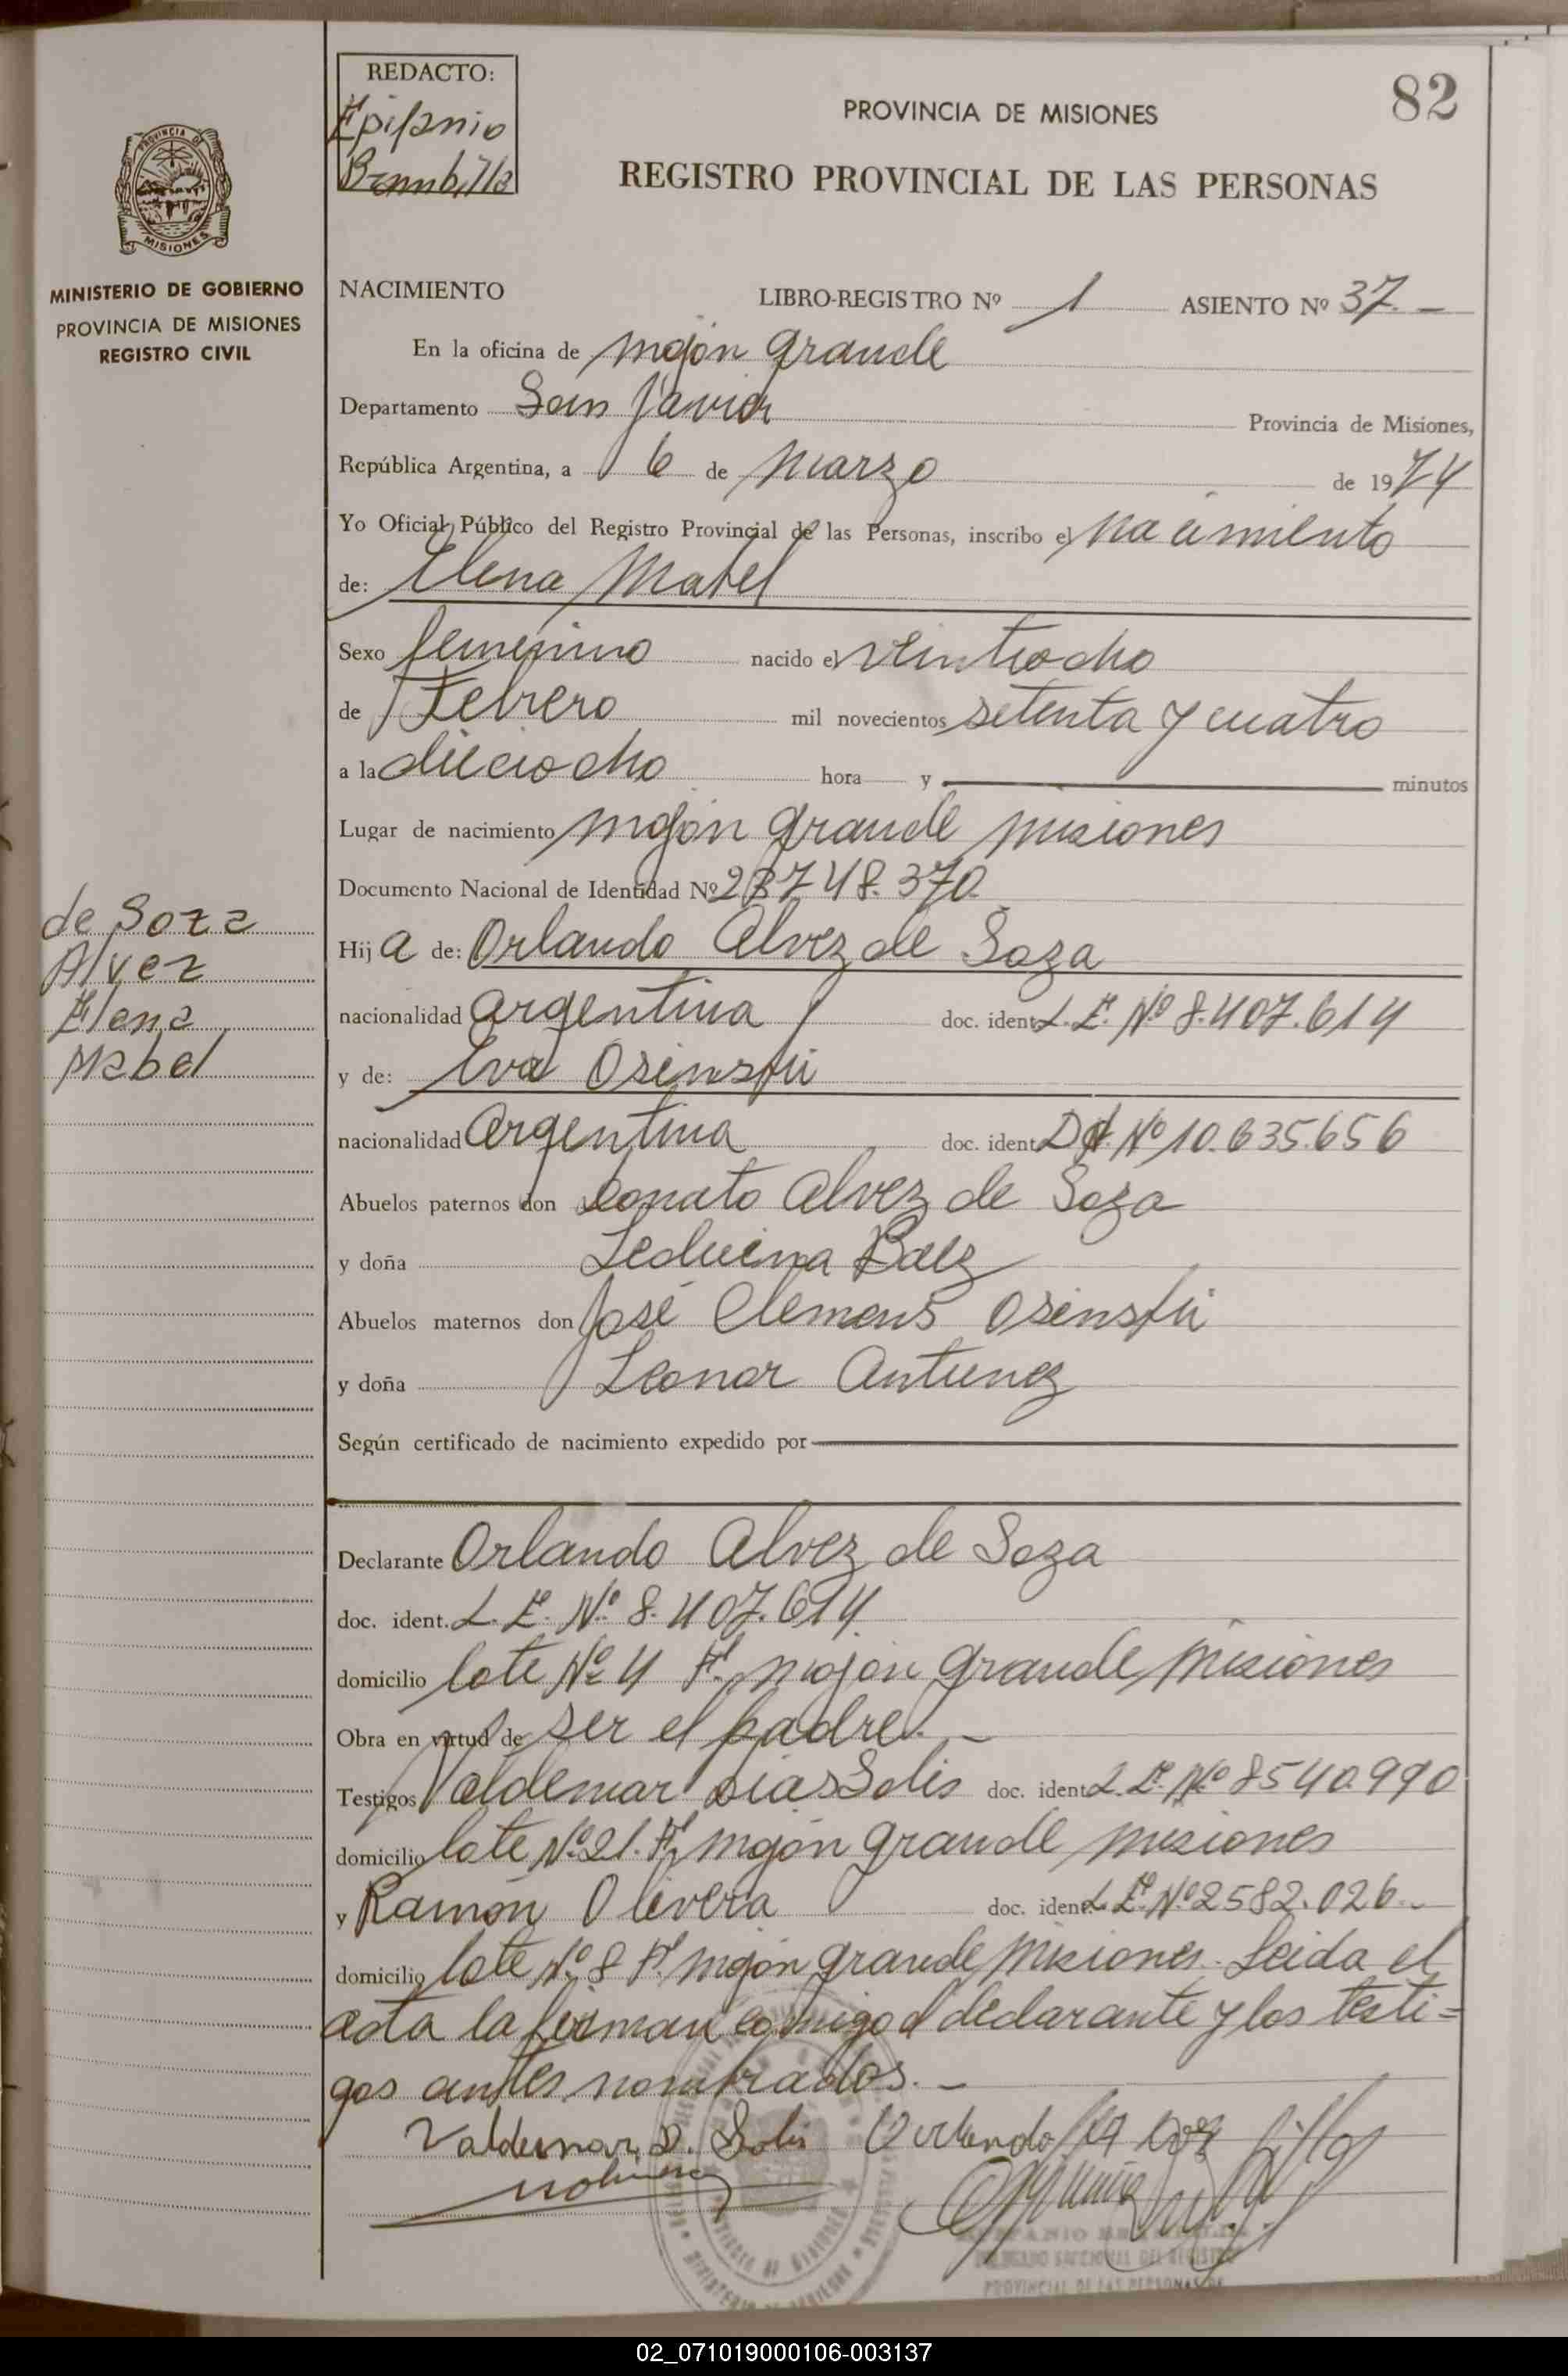 82
REDACTO:
Epifanio
Brambilla
PROVINCIA DE MISIONES
REGISTRO PROVINCIAL DE LAS PERSONAS
PROVINCIA DE
MISIONES
MINISTERIO DE GOBIERNO
PROVINCIA DE MISIONES
REGISTRO CIVIL
NACIMIENTO LIBRO-REGISTRO Nº 1 ASIENTO Nº 37.-
En la oficina de mojón grande
Departamento San Javier Provincia de Misiones,
República Argentina, a 6 de marzo de 1974
Yo Oficial Público del Registro Provincial de las Personas, inscribo el nacimiento
de: Elena Mabel
Sexo femenino nacido el veintiocho
de Febrero mil novecientos setenta y cuatro
a la dieciocho hora y minutos
Lugar de nacimiento mojón grande misiones
Documento Nacional de Identidad Nº 23748.370
de Soza
Alvez
Elena
Mabel
Hija de: Orlando Alvez de Soza
nacionalidad argentina doc. ident. L.E. Nº 8.407.614
y de: Eva Osinski
nacionalidad argentina doc. ident. Nº 10.635.656
Abuelos paternos don Donato Alvez de Soza
y doña Leduina Baez
Abuelos maternos don José Clemens Osinski
y doña Leonor Antunez
Según certificado de nacimiento expedido por
Declarante Orlando Alvez de Soza
doc. ident. L.E. Nº 8.407.614
domicilio lote Nº 4 mojón grande misiones
Obra en virtud de ser el padre.-
Testigos Valdemar Dias Solis doc. ident. L.E. Nº 8540.990
domicilio lote Nº 21. mojón grande misiones
y Ramón Olivera doc. ident. L.E. Nº 2582.026.-
domicilio lote Nº 8 mojón grande misiones. Leida el
acta la firman conmigo el declarante y los testi=
gos antes nombrados.-
Valdemar D. Solis Orlando
PROVINCIAL DE LAS PERSONAS
02_071019000106-003137